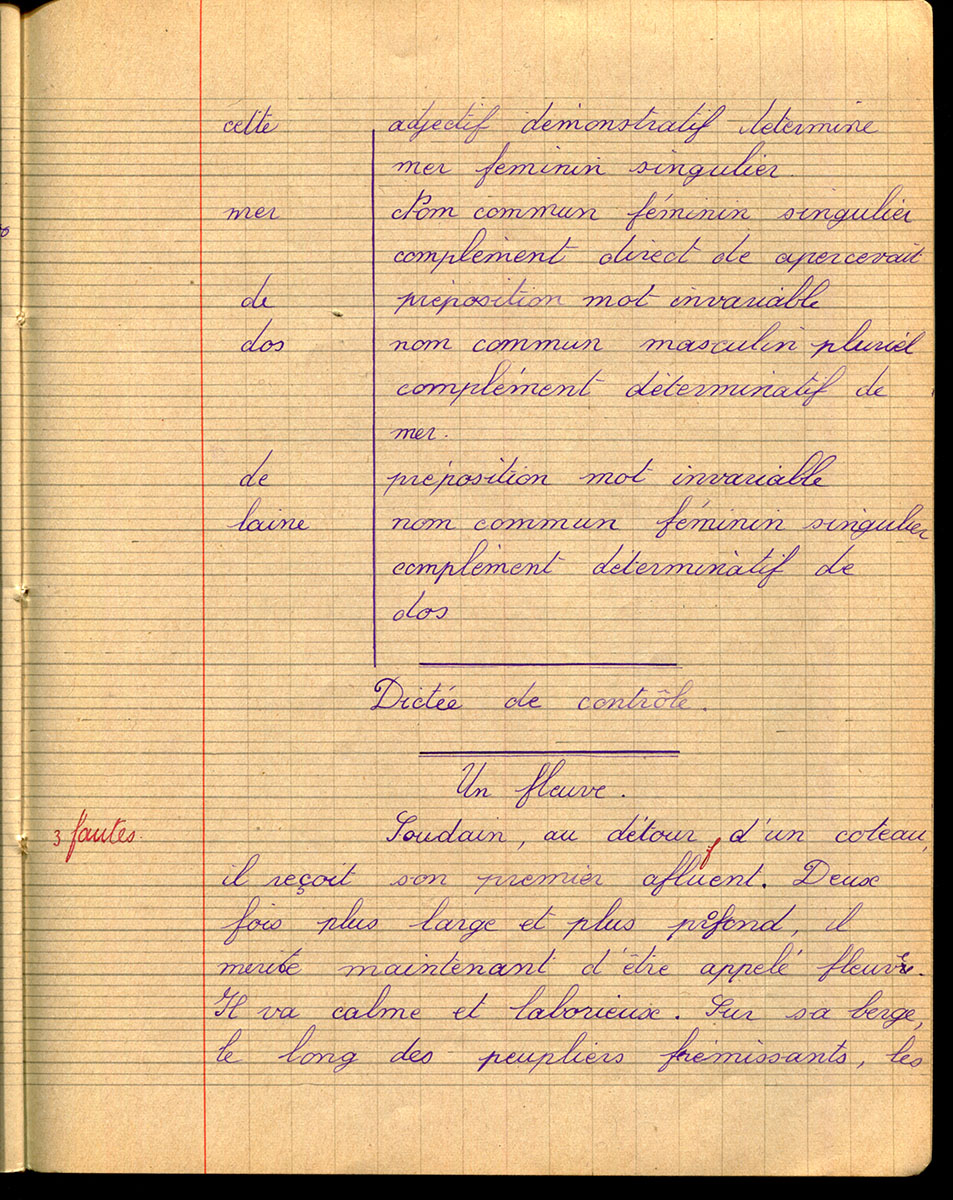 cette adjectif démonstratif détermine
mer féminin singulier
mer Nom commun féminin singulier
complément direct de apercevait
de préposition mot invariable
dos nom commun masculin pluriel
complément déterminatif de
mer.
de préposition mot invariable
laine nom commun féminin singulier
complément déterminatif de
dos
Dictée de contrôle.
Un fleuve.
3 fautes. Soudain, au détour d'un coteau,
il reçoit son premier afluent. Deux
fois plus large et plus profond, il
mérite maintenant d'être appelé fleuve.
Il va calme et laborieux. Sur sa berge,
le long des peupliers frémissants, les